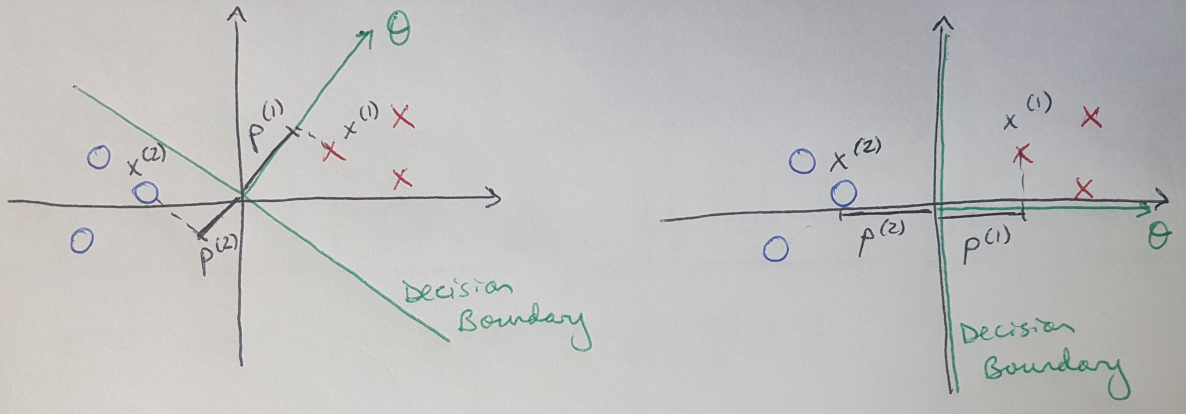 θ
p⁽¹⁾
x⁽¹⁾
x⁽²⁾
p⁽²⁾
Decision
Boundary
x⁽¹⁾
x⁽²⁾
p⁽²⁾
p⁽¹⁾
θ
Decision
Boundary